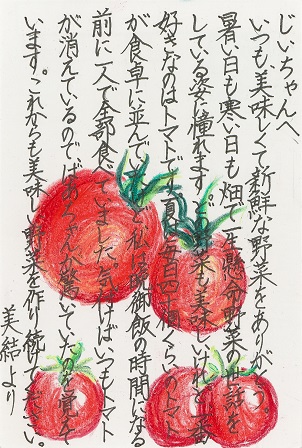 じいちゃんへ
いつも、美味しくて新鮮な野菜をありがとう。
暑い日も寒い日も畑で一生懸命野菜の世話を
している姿に憧れます。どの野菜も美味しいけれど一番
好きなのはトマトです。夏は毎日四十個くらいのトマト
が食卓に並んでいたけど私は晩御飯の時間になる
前に一人で全部食べていました。気付けばいつもトマト
が消えているのでばあちゃんが驚いていたのを覚えて
います。これからも美味しい野菜を作り続けてください。
美結より